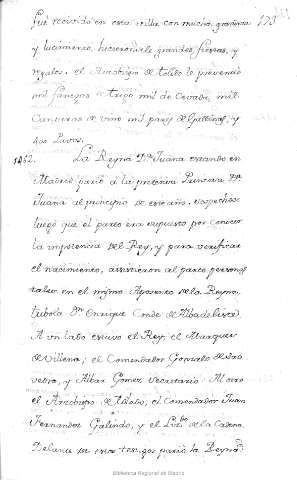 fué recevido en esta villa con mucha grandeza
y lucimiento, hicieronsele grandes fiestas, y
regalos. el Arzobispo de Toledo le presentó
mil fanegas de trigo mil de Cevada, mil
Cantaras de vino mil pares de Gallinas, y
dos Pavos.
1462. La Reyna Dª Juana estando en
Madrid parió a la pretensa Princesa Dª
Juana al principio de este año. sospechose
luego que el parto era supuesto por conocer
la impotencia del Rey, y para verificar
el nacimiento, asistieron al parto persona
tales en el mismo Aposento de la Reyna.
tubola Dn Enrique Conde de Alba de liste.
A un lado estuvo el Rey, el Marques
de Villena, el Comendador Gonzalo de Saa
vedra, y Albar Gomez Secretario. Al otro
el Arzobispo de Toledo, el Comendador Juan
Fernandez Galindo, y el de la Cadena.
Delante de estos testigos parió la Reyna
Biblioteca Regional de Madrid